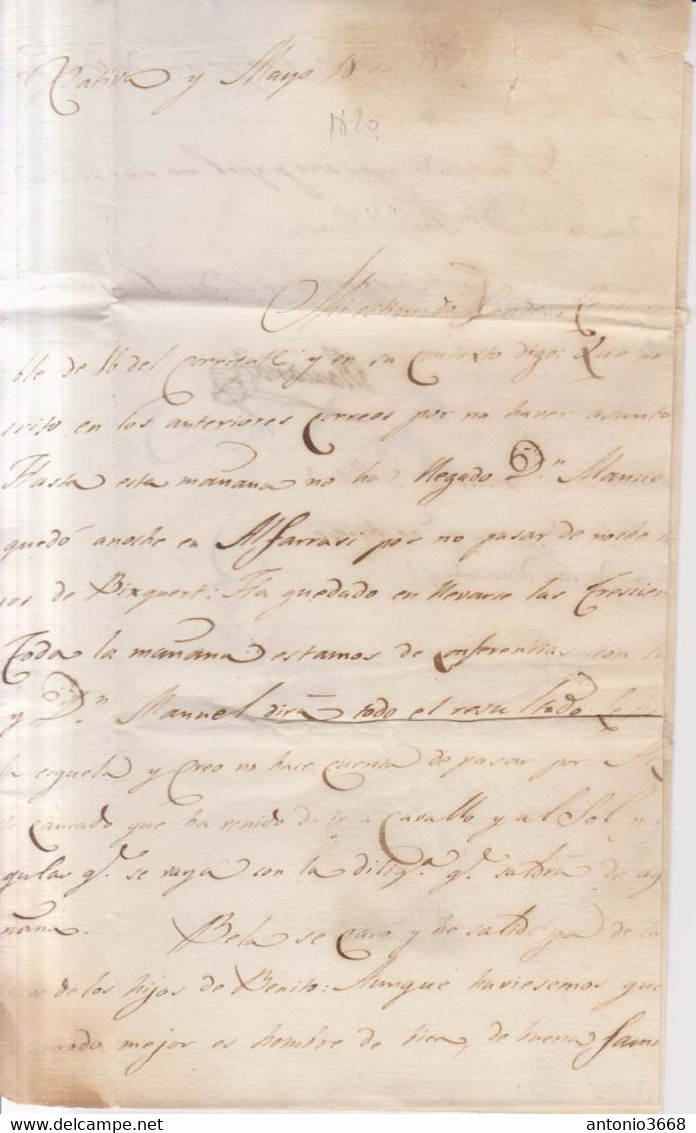 Xativa y Mayo 18
1820
Mi estimado
ble de 16 del corriente y en su contexto digo: Que no
crito en los anteriores Correos por no haver asunto
Hasta esta mañana no ha llegado D.n Manuel
quedó anoche en Alfarrasi por no pasar de noche
de Bixquert: Ha quedado en llevarse las
Toda la mañana estamos de conferencias con
y D.n Manuel dirá todo el resultado
la esquela y Creo no hase cuenta de pasar por
cansado que ha venido de ir a Cavallo y al Sol y
q.e se vaya con la dilig.a q.e saldrá de
ñana. Bela se Casó y he salido ya de
de los hijos de Benito: Aunque haviesemos que
mejor es hombre de bien, de buena
antonio3668